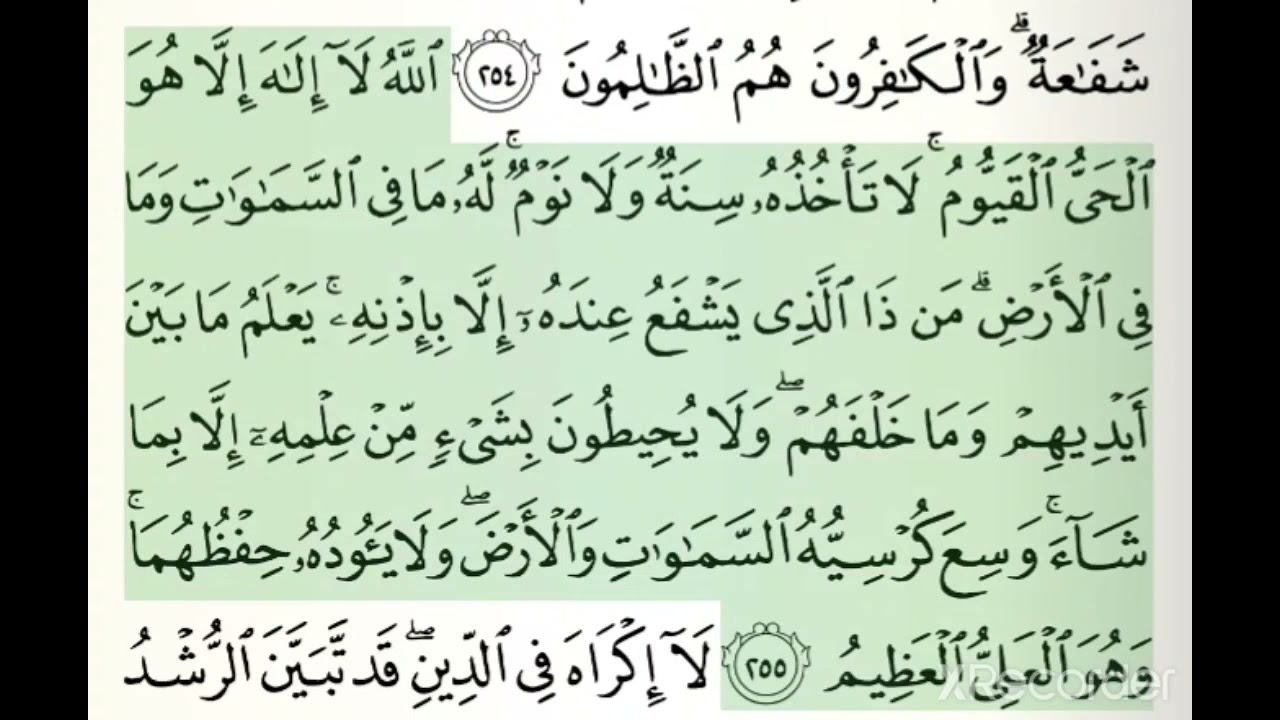 شَفَٰعَةٌۗ وَٱلۡكَٰفِرُونَ هُمُ ٱلظَّٰلِمُونَ ٢٥٤ ٱللَّهُ لَآ إِلَٰهَ إِلَّا هُوَ
ٱلۡحَيُّ ٱلۡقَيُّومُۚ لَا تَأۡخُذُهُۥ سِنَةٞ وَلَا نَوۡمٞۚ لَّهُۥ مَا فِي ٱلسَّمَٰوَٰتِ وَمَا
فِي ٱلۡأَرۡضِۗ مَن ذَا ٱلَّذِي يَشۡفَعُ عِندَهُۥٓ إِلَّا بِإِذۡنِهِۦۚ يَعۡلَمُ مَا بَيۡنَ
أَيۡدِيهِمۡ وَمَا خَلۡفَهُمۡۖ وَلَا يُحِيطُونَ بِشَيۡءٖ مِّنۡ عِلۡمِهِۦٓ إِلَّا بِمَا
شَآءَۚ وَسِعَ كُرۡسِيُّهُ ٱلسَّمَٰوَٰتِ وَٱلۡأَرۡضَۖ وَلَا يَـُٔودُهُۥ حِفۡظُهُمَاۚ
وَهُوَ ٱلۡعَلِيُّ ٱلۡعَظِيمُ ٢٥٥ لَآ إِكۡرَاهَ فِي ٱلدِّينِۖ قَد تَّبَيَّنَ ٱلرُّشۡدُ
XRecorder